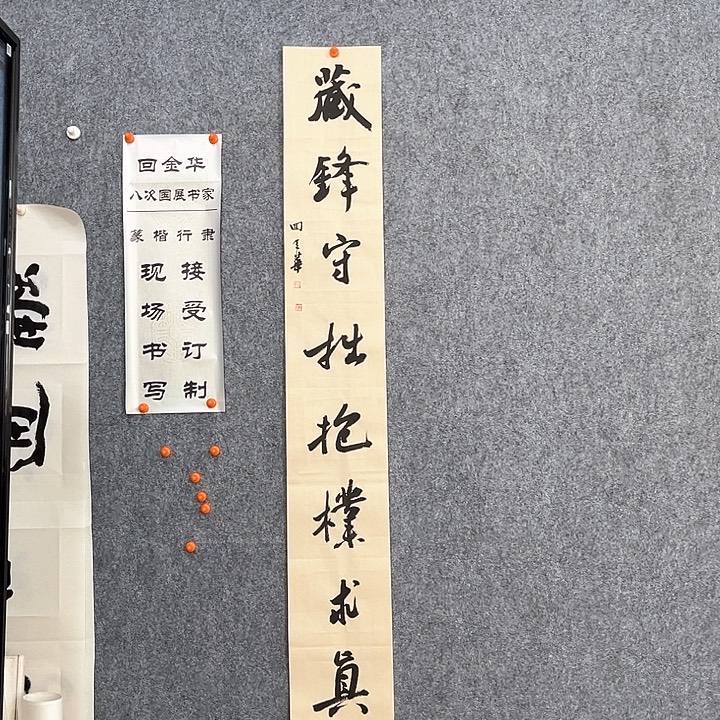 回金华
八次国展书家
篆楷行隶
现场书写
接受订制
藏鋒守拙抱樸求眞
回金華